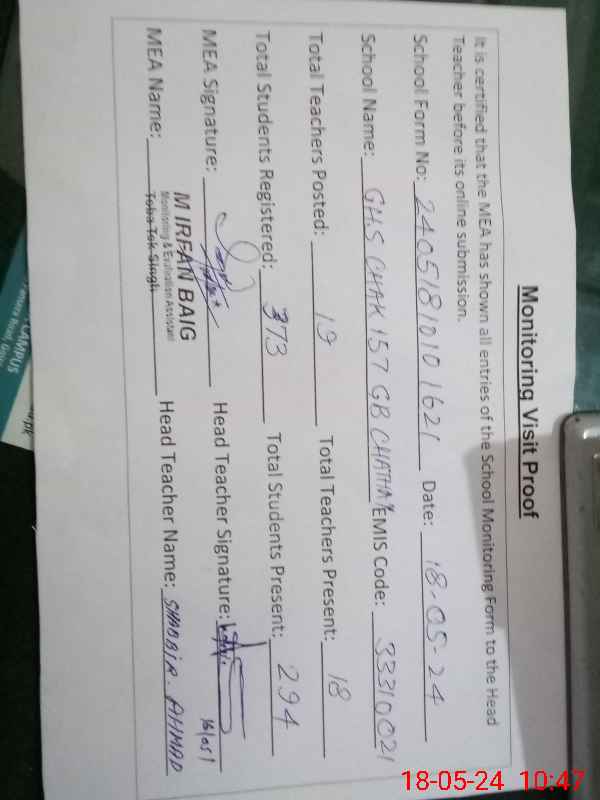 Monitoring Visit Proof
It is certified that the MEA has shown all entries of the School Monitoring Form to the Head
Teacher before its online submission.
School Form No: 2405181010 1621 Date: 18-05-24
School Name: GHS CHAK 157 GB CHATHA EMIS Code: 33310021
Total Teachers Posted: 19 Total Teachers Present: 18
Total Students Registered: 373 Total Students Present: 294
MEA Signature: Head Teacher Signature:
M IRFAN BAIG
Monitoring & Evaluation Assistant
MEA Name: Toba Tek Singh Head Teacher Name: SHABBIR AHMAD
CAMPUS
18-05-24 10:47